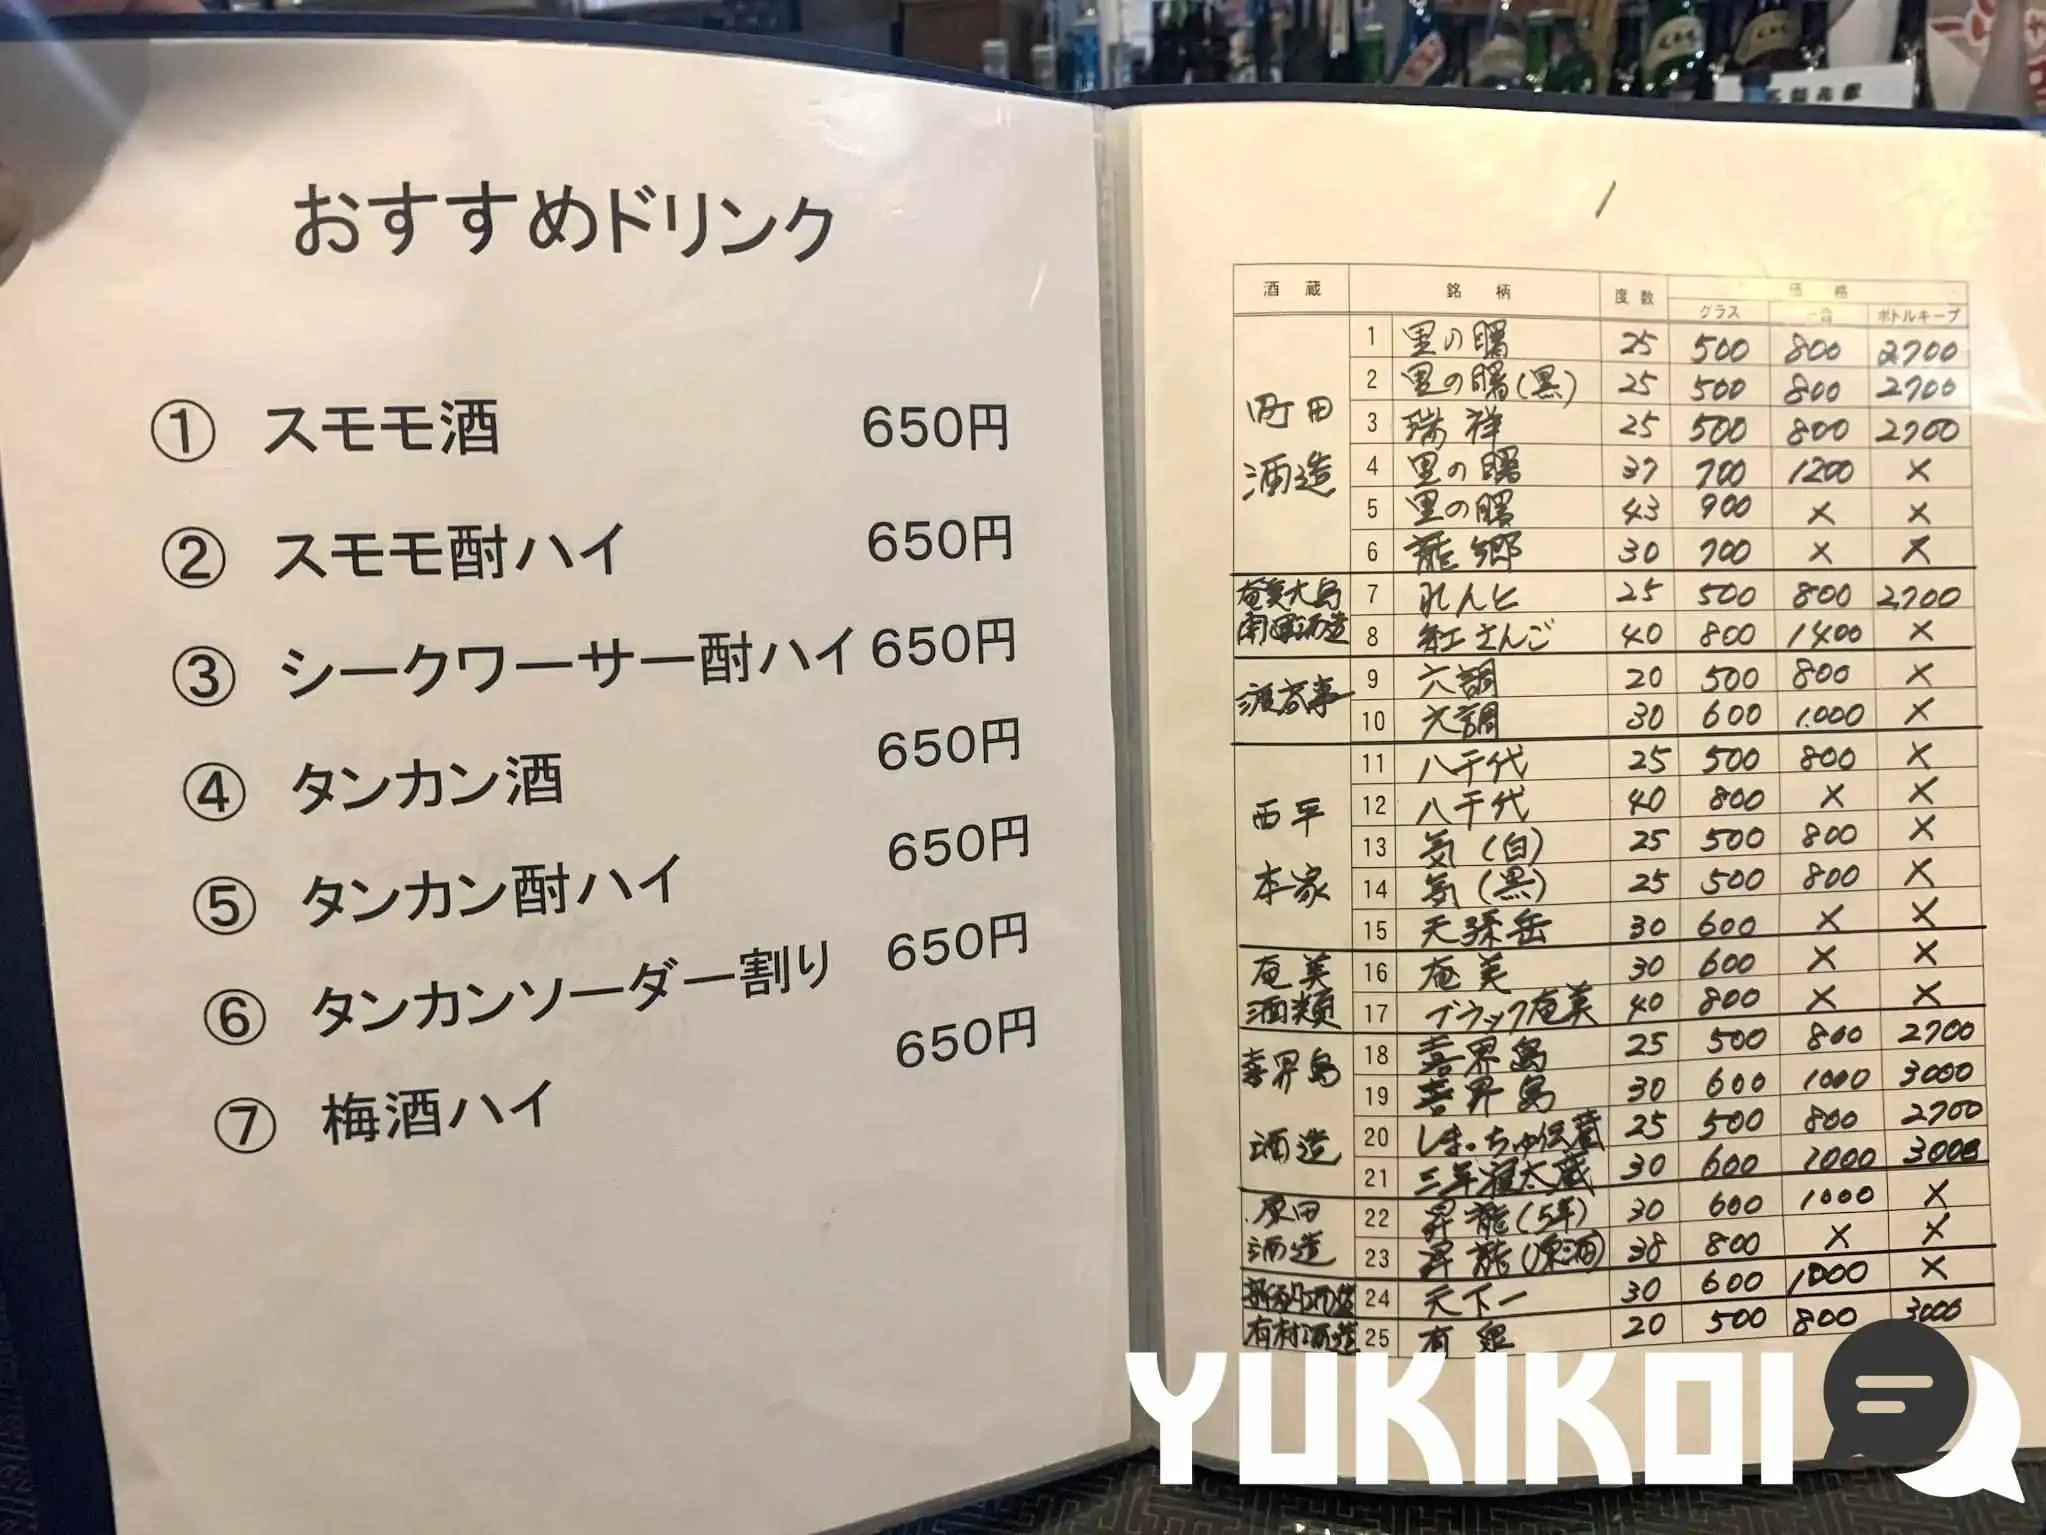 おすすめドリンク
① スモモ酒 650円
② スモモ酎ハイ 650円
③ シークワーサー酎ハイ 650円
④ タンカン酒 650円
⑤ タンカン酎ハイ 650円
⑥ タンカンソーダー割り 650円
⑦ 梅酒ハイ 650円
酒蔵 銘柄 度数 価格
グラス 一合 ボトルキープ
町田酒造
1 里の曙 25 500 800 2700
2 里の曙(黒) 25 500 800 2700
3 瑞祥 25 500 800 2700
4 里の曙 37 700 1200 ×
5 里の曙 43 900 × ×
6 龍郷 30 700 × ×
奄美大島
7 れんと 25 500 800 2700
8 紅さんご 40 800 1400 ×
9 六調 20 500 800 ×
10 六調 30 600 1.000 ×
西平本家
11 八千代 25 500 800 ×
12 八千代 40 800 × ×
13 気(白) 25 500 800 ×
14 気(黒) 25 500 800 ×
15 天孫岳 30 600 × ×
奄美酒類
16 奄美 30 600 × ×
17 ブラック奄美 40 800 × ×
喜界島酒造
18 喜界島 25 500 800 2700
19 喜界島 30 600 1000 3000
20 しまっちゅ伝蔵 25 500 800 2700
21 三年寝太蔵 30 600 1000 3000
原田酒造
22 昇龍(5年) 30 600 1000 ×
23 昇龍(原酒) 38 800 × ×
24 天下一 30 600 1000 ×
有村酒造
25 有泉 20 500 800 3000
YUKIKOI